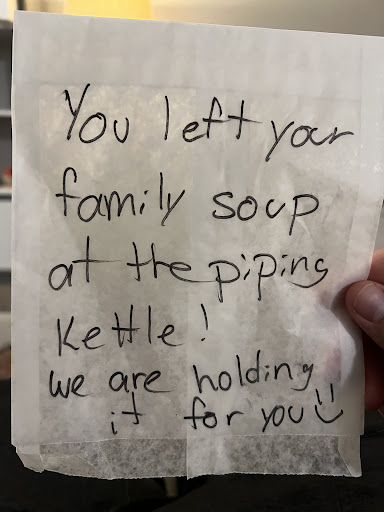 You left your
family soup
at the piping
Kettle!
we are holding
it for you :)